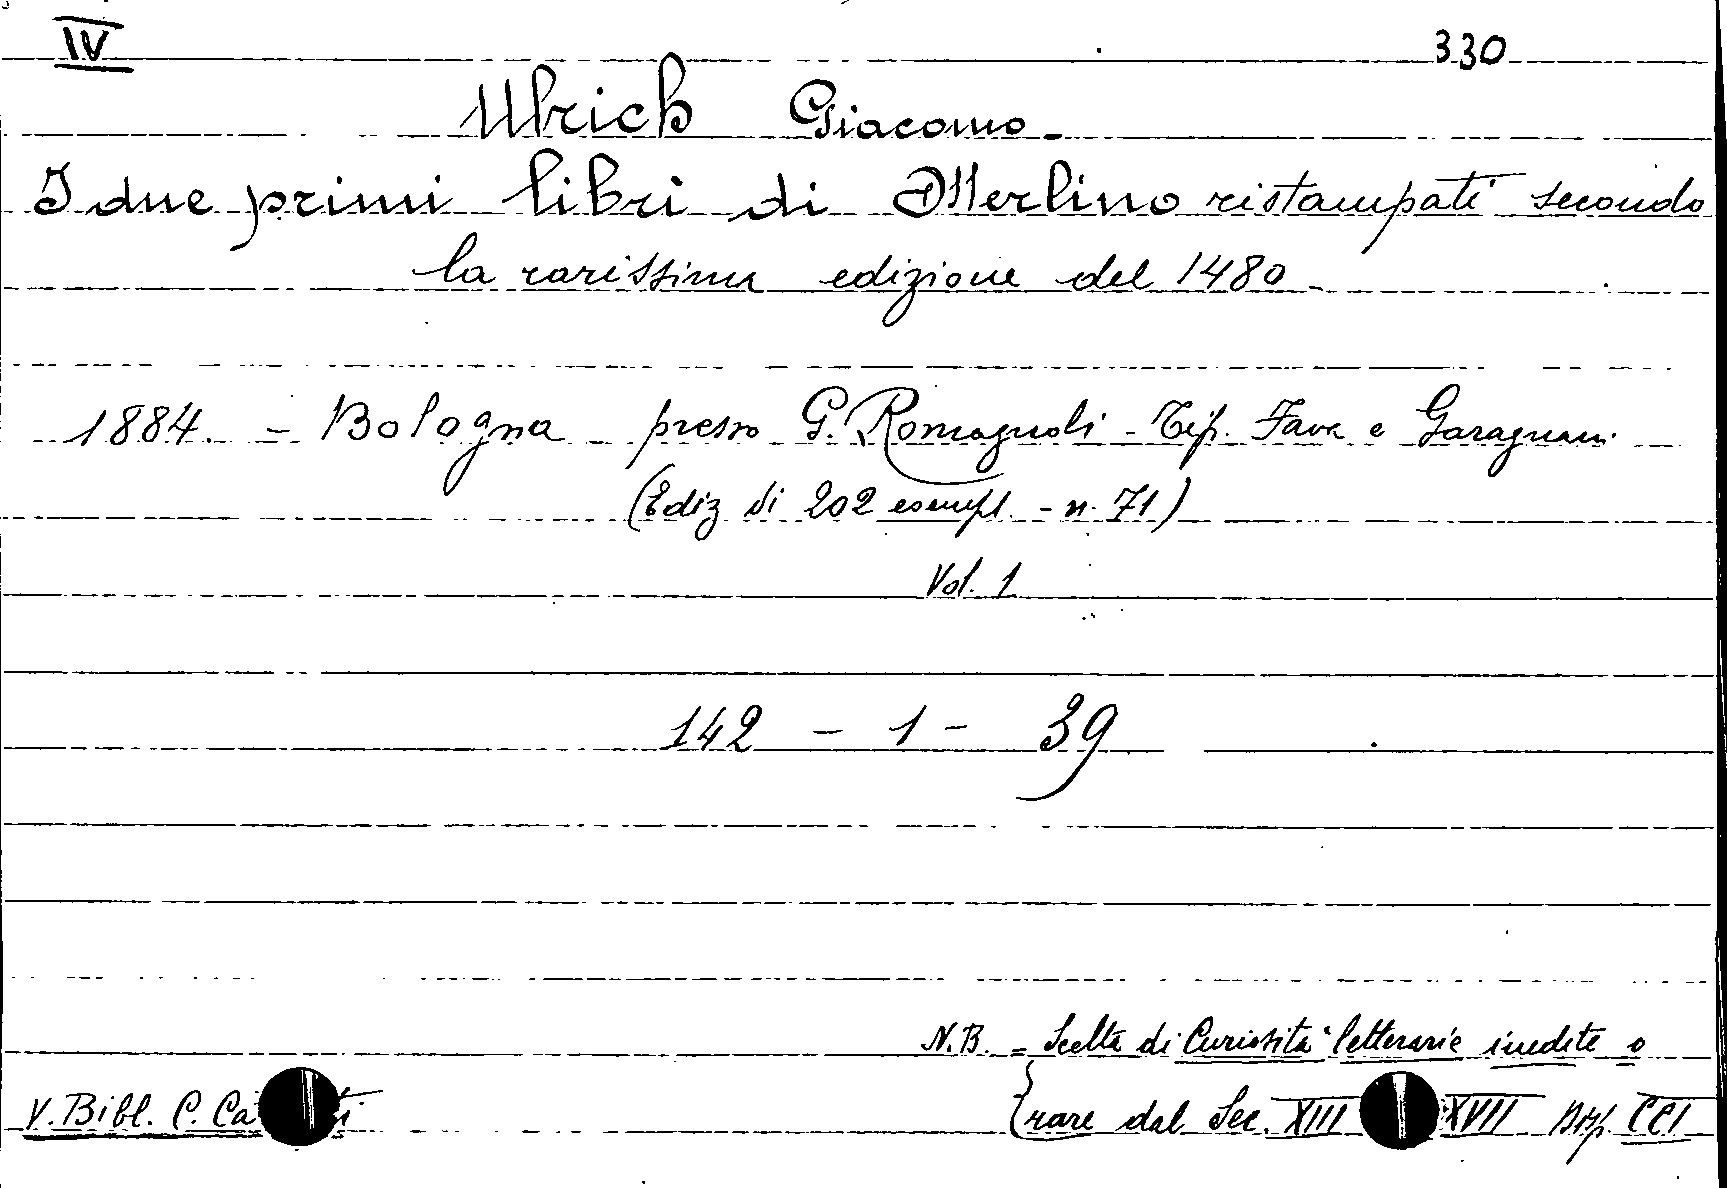 IV 330
Ulrich Giacomo -
I due primi libri di Merlino ristampati secondo
la rarissima edizione del 1480 -
1884. - Bologna - presso G. Romagnoli - Tip. Fava e Garagnani.
(Ediz di 202 esempl. - n. 71)
Vol. 1
142 - 1 - 39
N.B. = Scelta di Curiosità letterarie inedite o
V. Bibl. C. Ca ti rare dal Sec. XIII XVII Disp. CCI